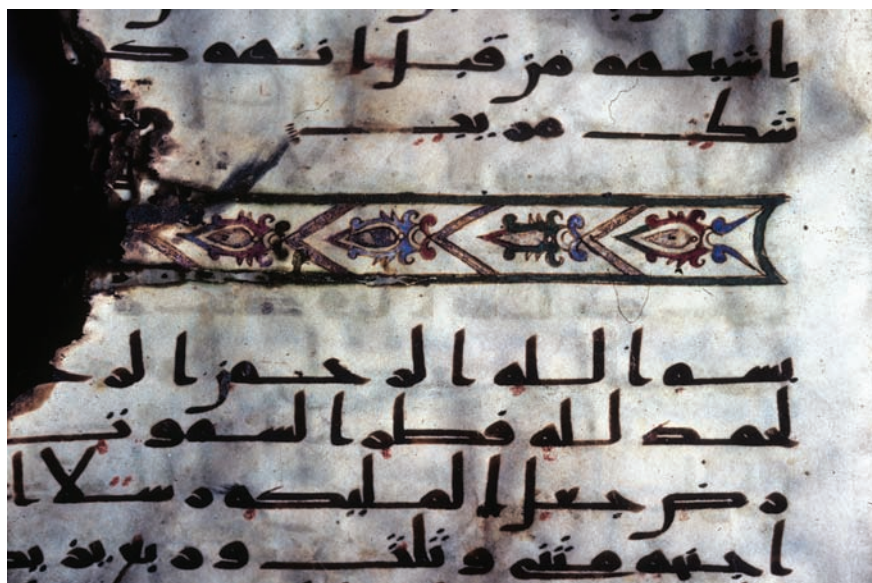 باشيعهم من قبل انهم ك
شك مريب
بسم الله الرحمن الرح
لحمد لله فطر السموت
رض جعل المليكة رسلا ا
اجنحة مثنى وثلث وربع يزيد